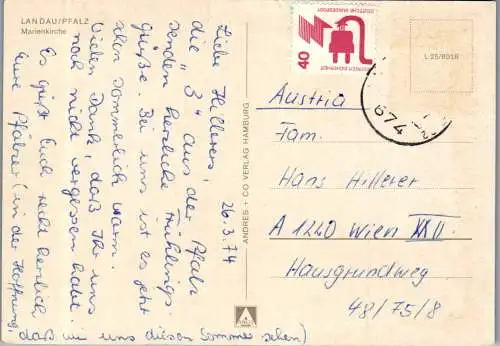 LANDAU/PFALZ
Marienkirche
26.3.74
Liebe Hillerers,
die "3" aus der Pfalz
senden herzliche Frühlings-
grüße. Bei uns ist es jetzt
schon sommerlich warm.
Vielen Dank, daß Ihr uns
noch nicht vergessen habt.
Es grüßt Euch recht herzlich
Eure Pfälzer (in der Hoffnung,
daß wir uns diesen Sommer sehen)
ANDRES + CO VERLAG HAMBURG
40
DEUTSCHE BUNDESPOST
674
L 25/8018
Austria
Fam.
Hans Hillerer
A 1220 Wien XXII
Hausgrundweg
48/75/8